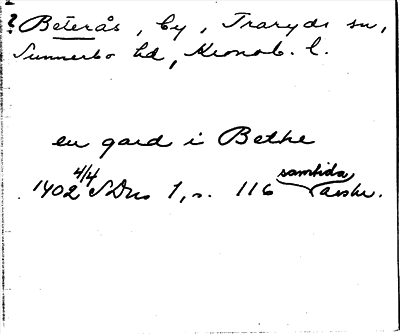 ? Beterås, by, Traryds sn,
Sunnerbo hd, Kronob. l.
en gard i Bethe
1402 4/4 SDns 1, s. 116 samtida avskr.